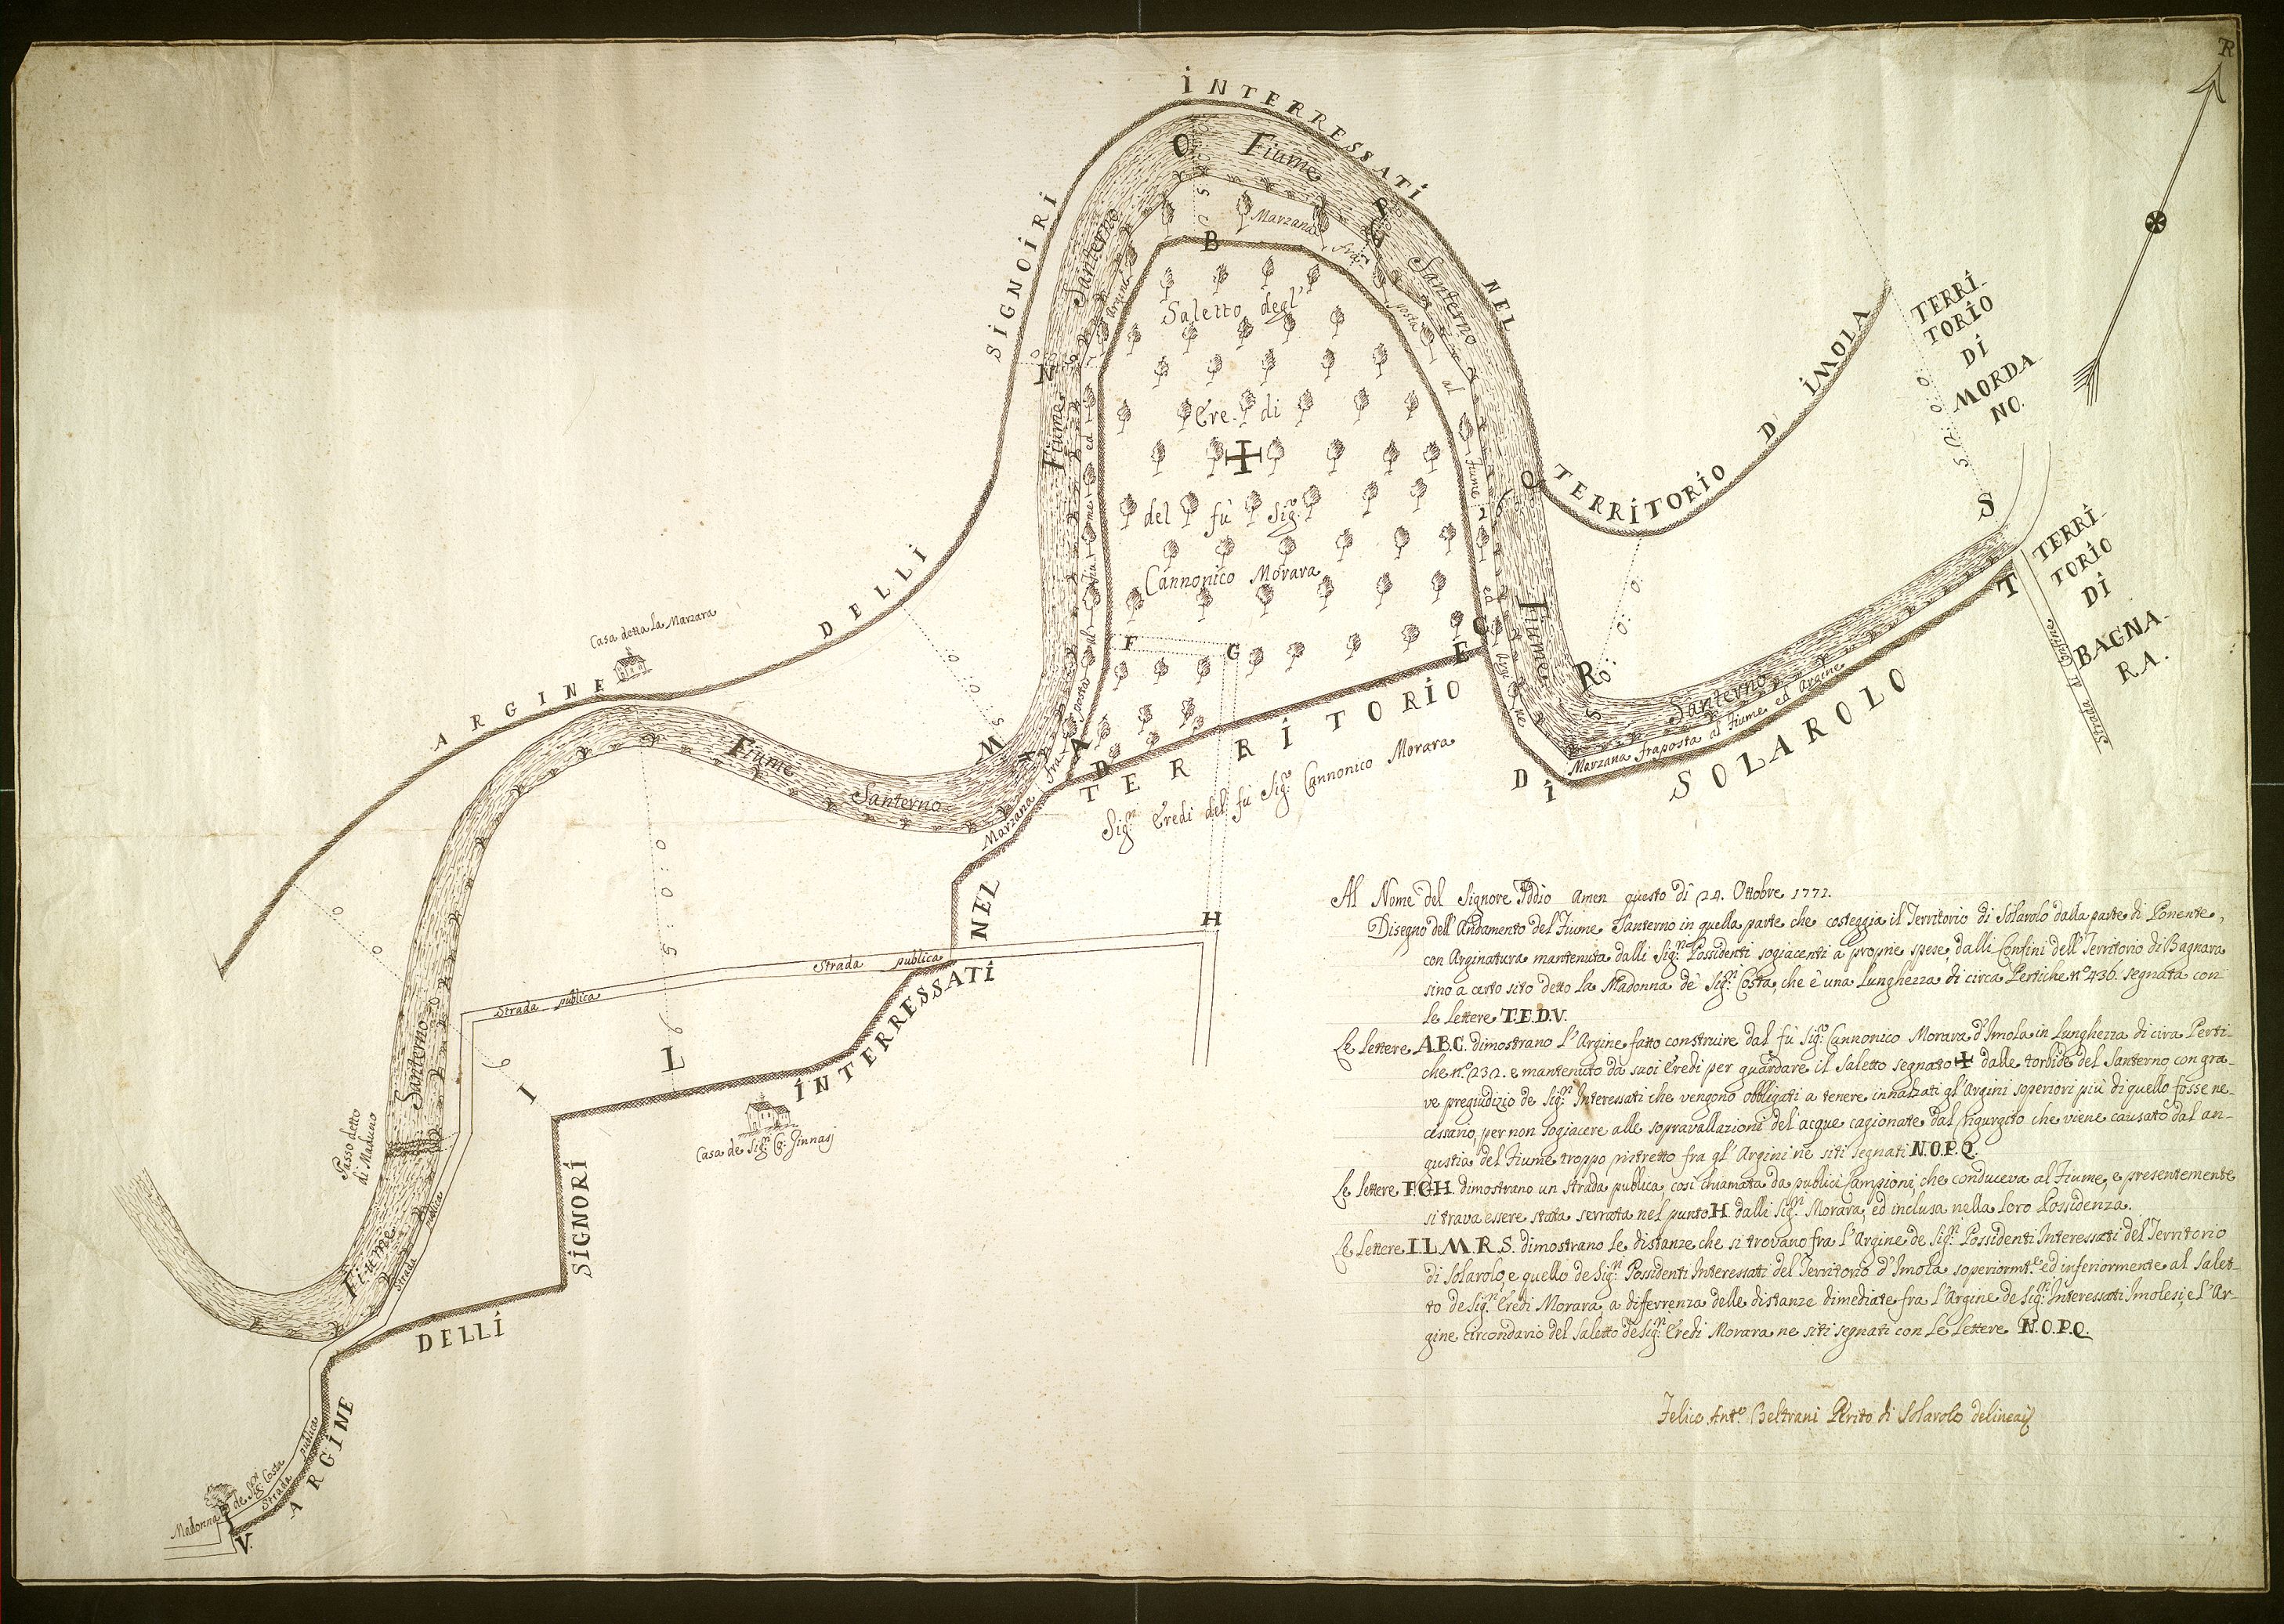 R
SIGNORI INTERRESSATI NEL TERRITORIO D' IMOLA
ARGINE DELLI
TERRI-
TORIO
DI
MORDA
NO.
TERRI-
TORIO
DI
BAGNA-
RA.
Strada di Confine
O
Fiume
Santerno
P
B
Marzana fraposta al Fiume ed Argine
Saletto degl'
Ere- di
del fù Sigr.
Cannonico Morara
N
Fiume
Santerno
Marzana fraposta al Fiume ed Argine
Q
S
T
F
G
E
C
R
Fiume
Santerno
Marzana fraposta al Fiume ed Argine
Casa detta la Marzara
M
A
D
Fiume
Santerno
TERRITORIO DI SOLAROLO
Sigri. Eredi del fù Sigr. Cannonico Morara
NEL
H
Strada publica
Strada publica
INTERRESSATI
L
I
Casa de Sigri. Co: Zinnasj
SIGNORI
DELLI
ARGINE
Santerno
Passo detto
di Maduno
Fiume
Strada publica
Strada publica
Madonna de Sigri. Costa
V.
Al Nome del Signore Iddio Amen questo dì 24. Ottobre 1771.
Disegno dell'Andamento del Fiume Santerno in quella parte che costeggia il Territorio di Solarolo dalla parte di Ponente,
con Arginatura mantenuta dalli Sigri. Possidenti sogiacenti a proprie spese, dalli Confini dell'Territorio di Bagnara
sino a certo sito detto la Madonna de' Sigri. Costa, che è una Lunghezza di circa Pertiche n.° 436. segnata con
le lettere T.E.D.V.
Le lettere A.B.C. dimostrano l'Argine fatto construire dal fù Sigr. Cannonico Morara d'Imola in Lunghezza di cira Perti-
che n.° 232. e mantenuto da suoi Eredi per guardare il Saletto segnato ✚ dalle torbide del Santerno, con gra-
ve pregiudizio de Sigri. Interessati che vengono obbligati a tenere inhalzati gl'Argini soperiori più di quello fosse ne-
cessario, per non sogiacere alle sopravallazioni del'acque cagionate dal Rigurgito che viene causato dal an-
gustia del Fiume troppo ristretto fra gl'Argini ne siti segnati N.O.P.Q.
Le lettere F.G.H. dimostrano un strada publica, così chiamata da publici Campioni, che conduceva al Fiume, e presentemente
si trava essere stata serrata nel punto H. dalli Sigri. Morara, ed inclusa nella loro Possidenza.
Le lettere I.L.M.R.S. dimostrano le distanze che si trovano fra l'Argine de Sigri. Possidenti Interessati del Territorio
di Solarolo, e quello de Sigri. Possidenti Interessati del Territorio d'Imola soperiormte. ed inferiormente al Salet-
to de Sigri. Eredi Morara, a differrenza delle distanze dimediate fra l'Argine de Sigri. Interessati Imolesi, e l'Ar-
gine circondario del Saletto de Sigri. Eredi Morara ne siti segnati con le lettere N.O.P.Q.
Felice Anto. Beltrani Perito di Solarolo delineai